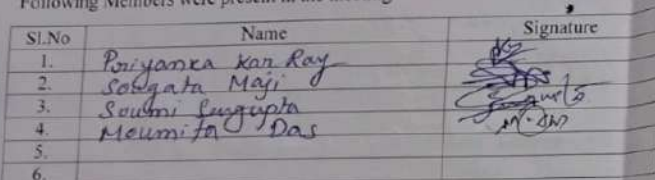 Following Members were present in the meeting
Sl.No Name Signature
1. Priyanka Kan Ray
2. Sougata Maji
3. Soumi Sengupta
4. Moumita Das M. Das
5.
6.